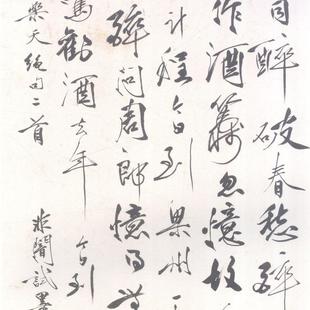 同醉破春愁醉
作酒籌忽憶故
計程今日到梁州
醉問周師憶得
勸酒去年今日到
樂天絕句二首 非闇試墨